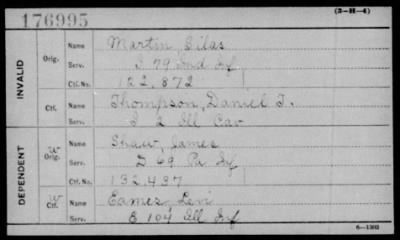 176995
(3-H-4)
INVALID
Orig.
Name Martin, Silas
Serv. I 79 Ind Inf
Ctf. No. 122,872
Ctf.
Name Thompson, Daniel T.
Serv. I 2 Ill Cav
DEPENDENT
W Orig.
Name Shaw, James
Serv. D 69 Pa Inf
Ctf. No. 132,437
W Ctf.
Name Eames, Levi
Serv. E 104 Ill Inf
6—1302